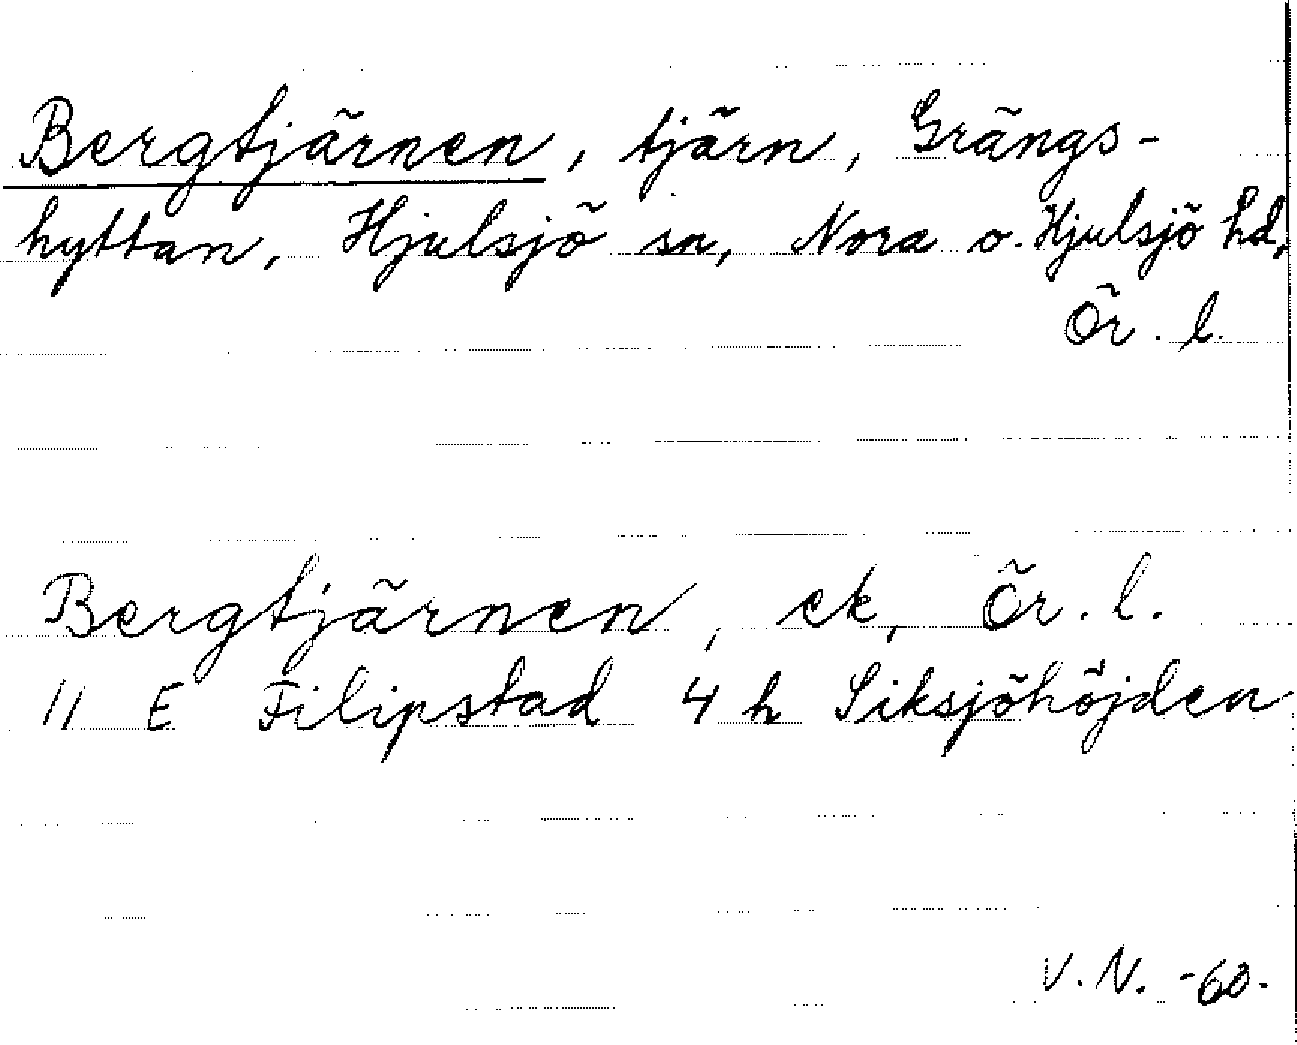 Bergtjärnen, tjärn, Grängs-
hyttan, Hjulsjö sn, Nora o. Hjulsjö hd,
Ör. l.
Bergtjärnen, ek, Ör. l.
11 E Filipstad 4 h Siksjöhöjden
V. N. -60.